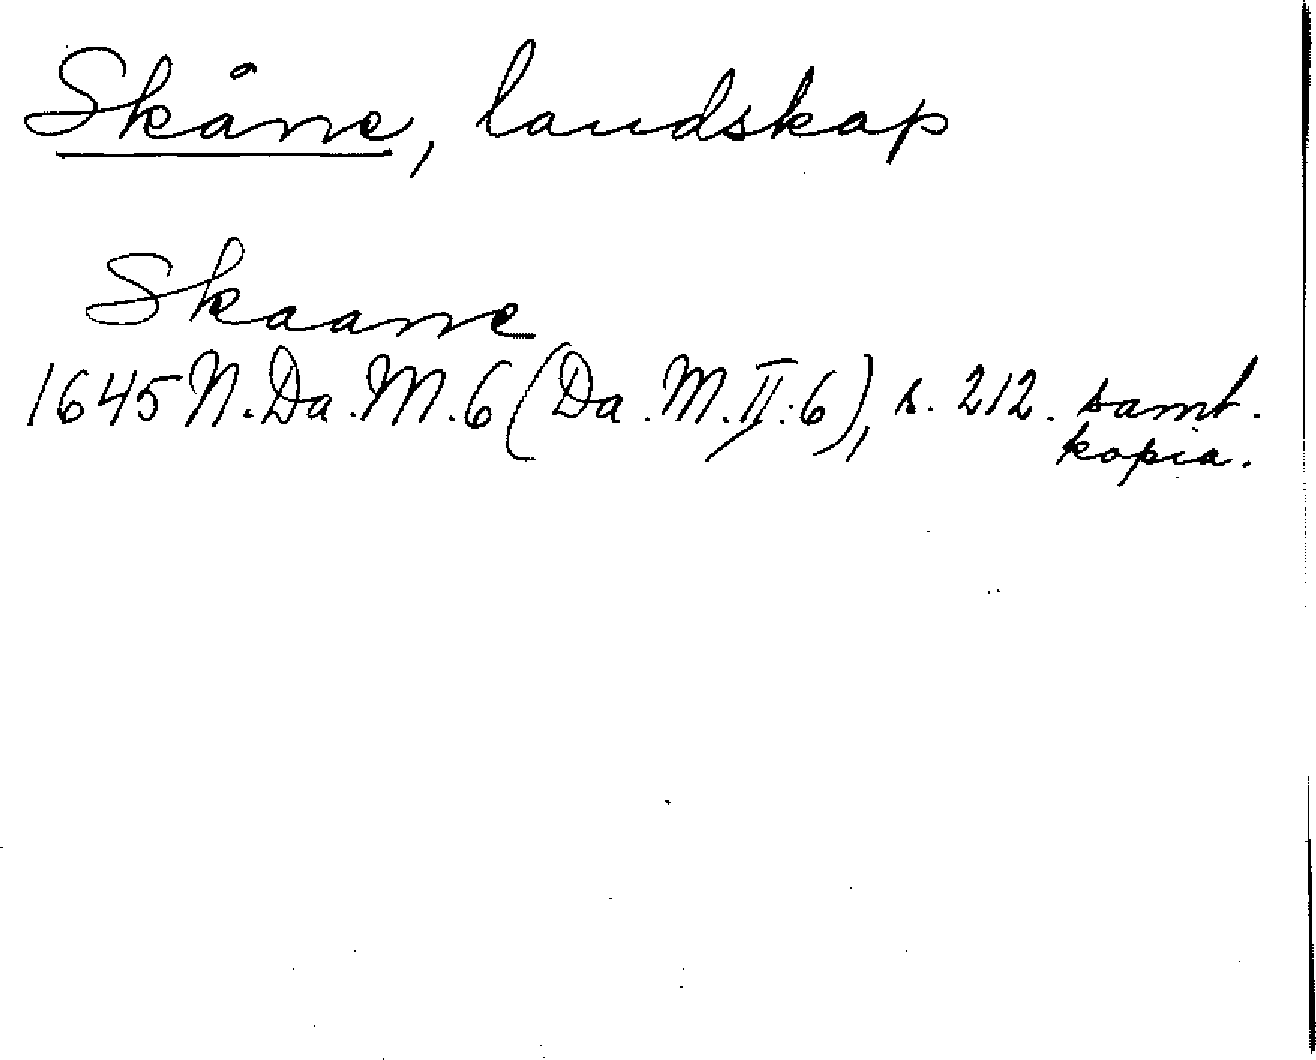 Skåne, landskap
Skaane
1645 N.Da.M.6 (Da.M.II.6), s. 212. samt.
kopia.